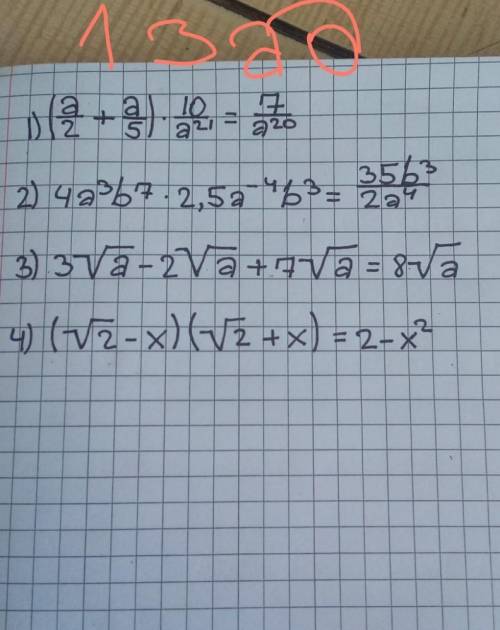 1320
1) (a/2 + a/5) · 10/a²¹ = 7/a²⁰
2) 4a³b⁷ · 2,5a⁻⁴b³ = 35b³/2a⁴
3) 3√a - 2√a + 7√a = 8√a
4) (√2 - x)(√2 + x) = 2 - x²